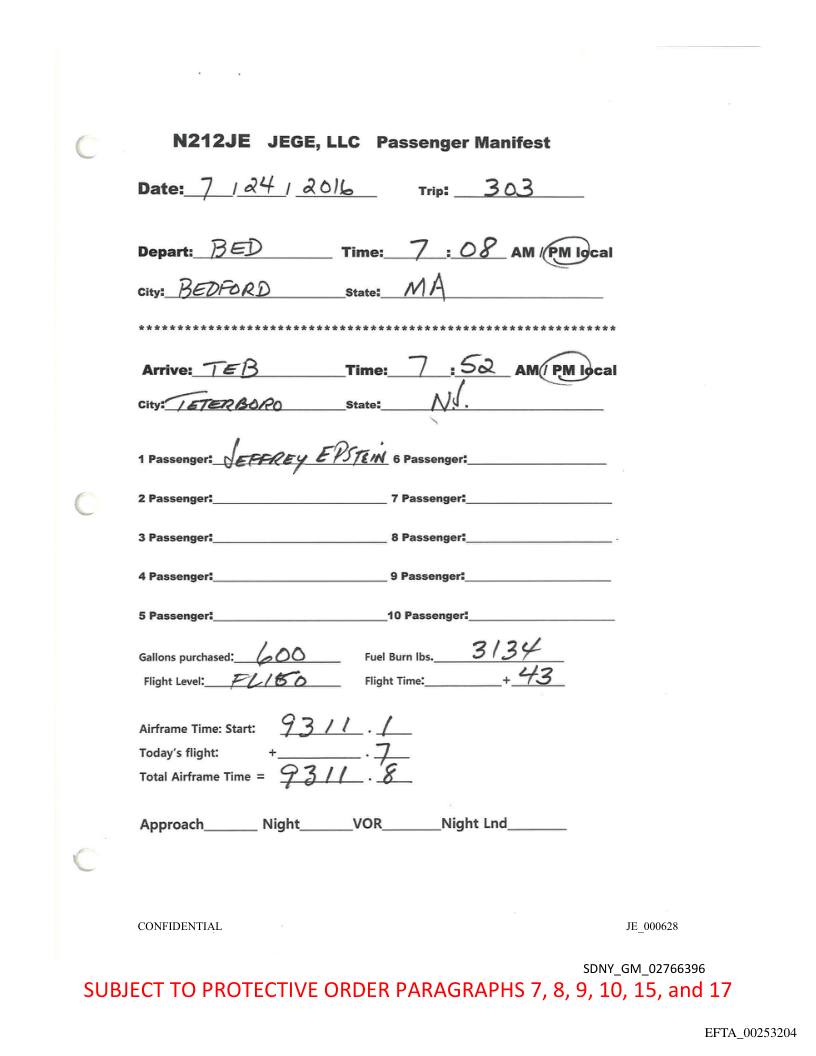 N212JE JEGE, LLC Passenger Manifest
Date: 7 / 24 / 2016 Trip: 303
Depart: BED Time: 7 : 08 AM / PM local
City: BEDFORD State: MA
**************************************************************
Arrive: TEB Time: 7 : 52 AM / PM local
City: TETERBORO State: N.J.
1 Passenger: JEFFREY EPSTEIN 6 Passenger:
2 Passenger: 7 Passenger:
3 Passenger: 8 Passenger:
4 Passenger: 9 Passenger:
5 Passenger: 10 Passenger:
Gallons purchased: 600 Fuel Burn lbs. 3134
Flight Level: Flight Time: + 43
Airframe Time: Start: 9311 . 1
Today's flight: + . 7
Total Airframe Time = 9311 . 8
Approach Night VOR Night Lnd
CONFIDENTIAL JE_000628
SDNY_GM_02766396
SUBJECT TO PROTECTIVE ORDER PARAGRAPHS 7, 8, 9, 10, 15, and 17
EFTA_00253204